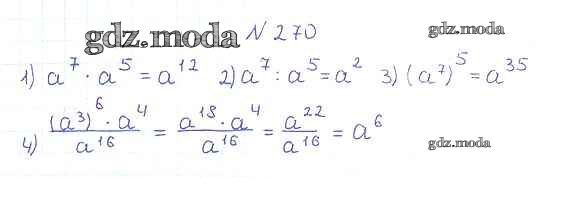 gdz.moda № 270 gdz.moda
1) a⁷ · a⁵ = a¹² 2) a⁷ : a⁵ = a² 3) (a⁷)⁵ = a³⁵
4) (a³)⁶ · a⁴ / a¹⁶ = a¹⁸ · a⁴ / a¹⁶ = a²² / a¹⁶ = a⁶
gdz.moda